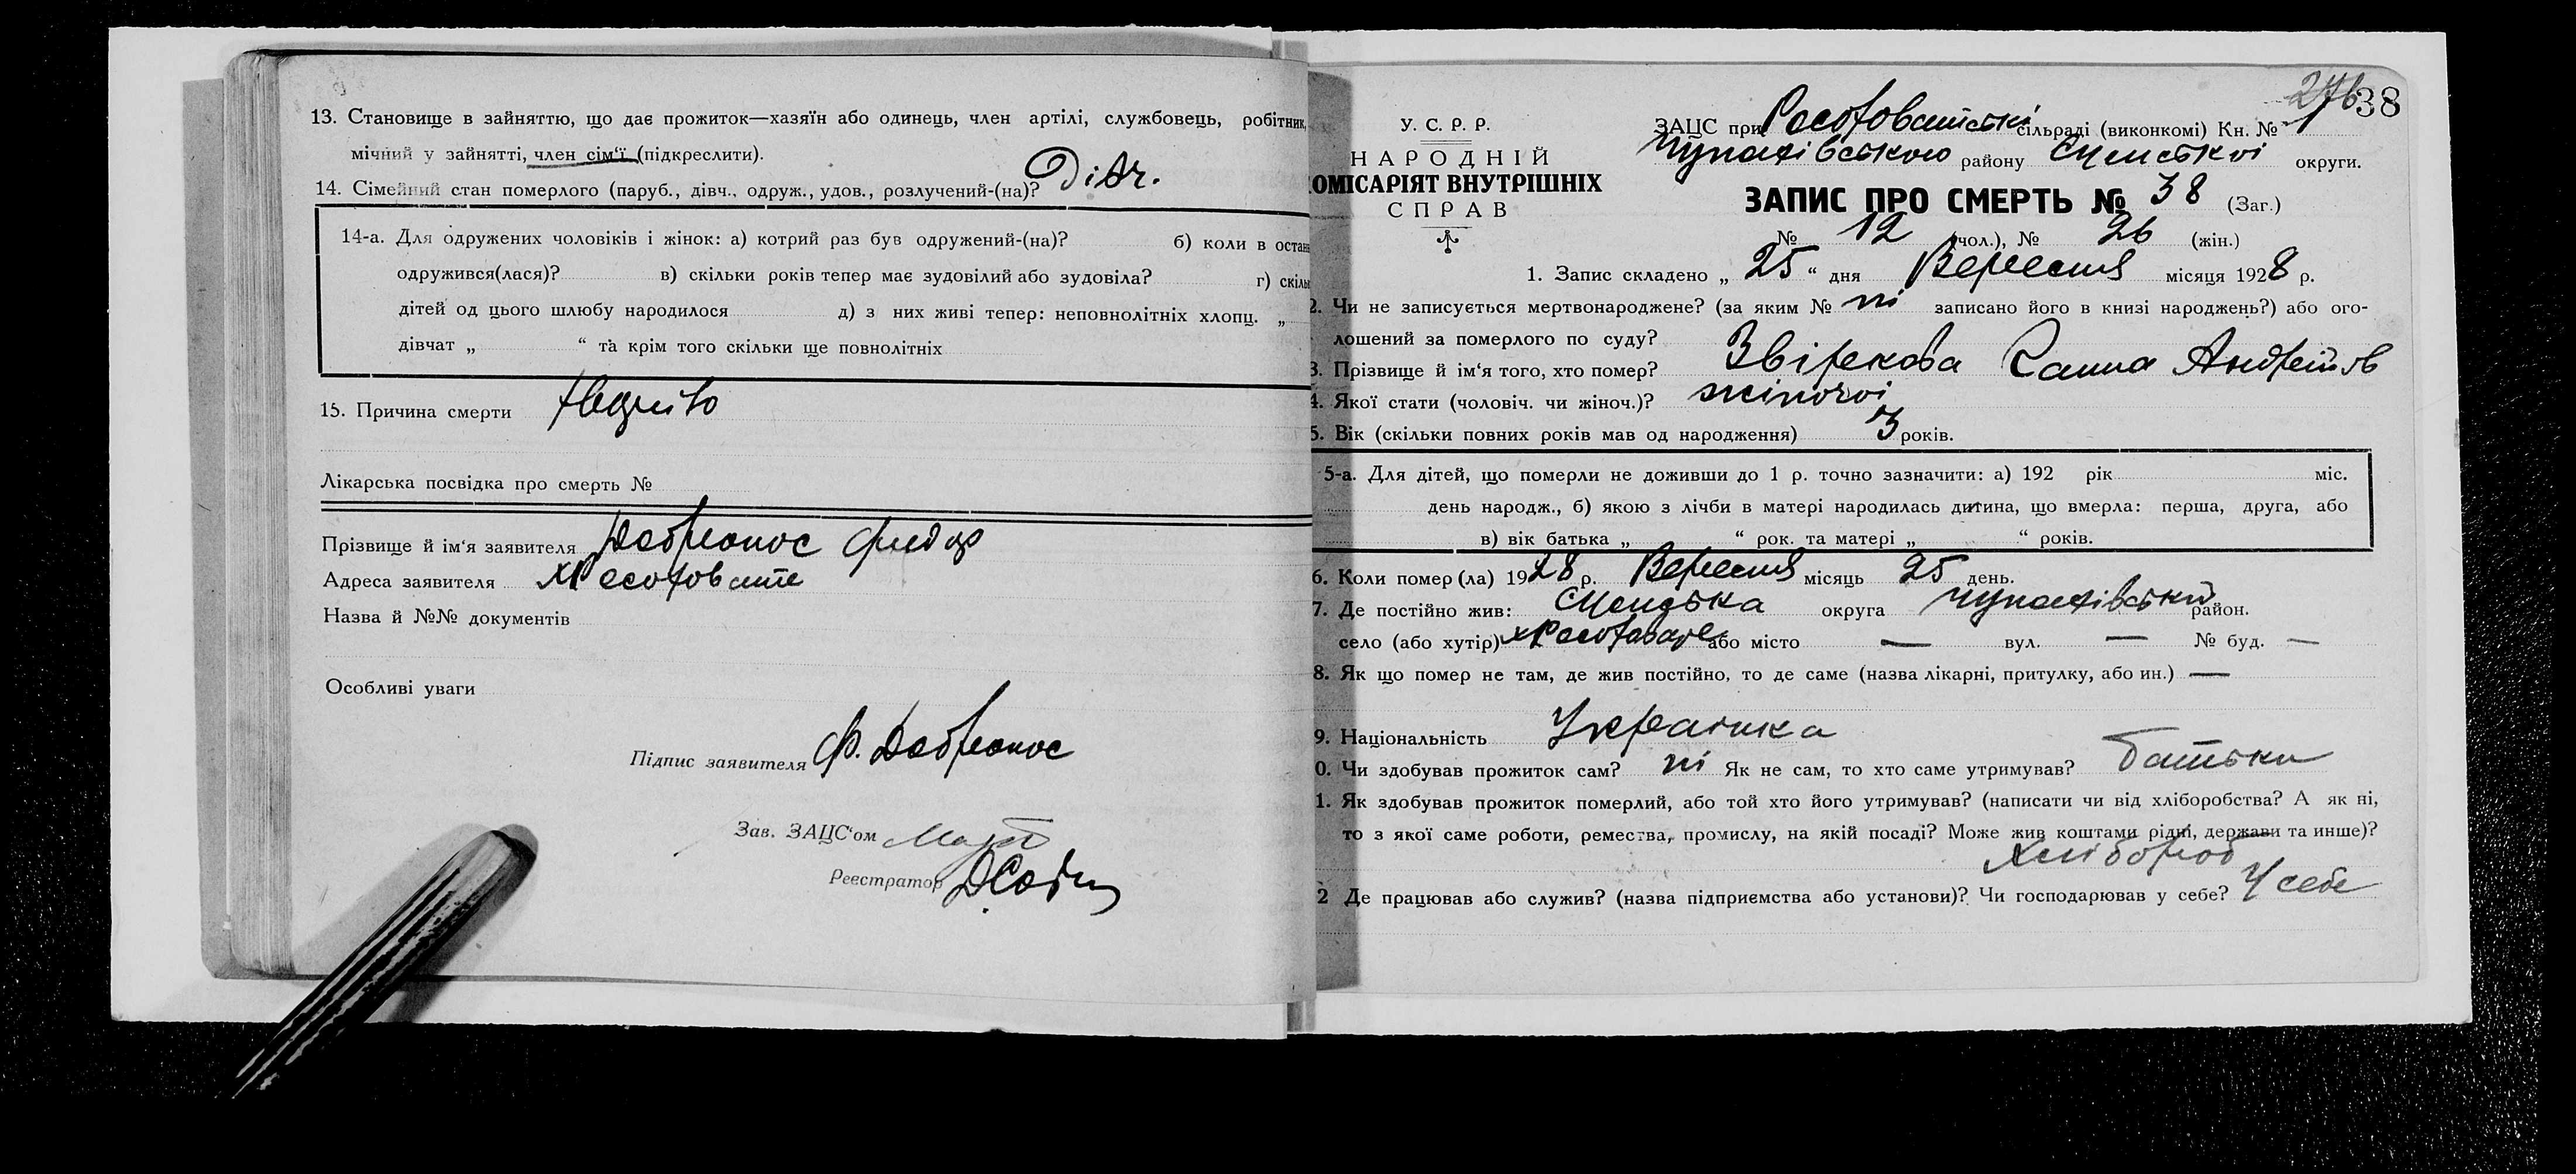 13. Становище в зайняттю, що дає прожиток—хазяїн або одинець, член артілі, службовець, робітник,
мічний у зайнятті, член сім'ї (підкреслити).
14. Сімейний стан померлого (паруб., дівч., одруж., удов., розлучений-(на)? Дівч.
14-а. Для одружених чоловіків і жінок: а) котрий раз був одружений-(на)? б) коли в остан
одружився(лася)? в) скільки років тепер має зудовілий або зудовіла? г) скіль
дітей од цього шлюбу народилося д) з них живі тепер: неповнолітніх хлопц. „
дівчат „ “ та крім того скільки ще повнолітніх
15. Причина смерти
Лікарська посвідка про смерть №
Прізвище й ім'я заявителя
Адреса заявителя
Назва й №№ документів
Особливі уваги
Підпис заявителя Ф.
Зав. ЗАЦС'ом
Реєстратор
38
У. С. Р. Р.
НАРОДНІЙ
КОМІСАРІЯТ ВНУТРІШНІХ
СПРАВ
ЗАЦС при сільраді (виконкомі) Кн. № 1
Чупахівською району Сумської округи.
ЗАПИС ПРО СМЕРТЬ № 38 (Заг.)
№ 12 (чол.), № 26 (жін.)
1. Запис складено „ 25 “ дня Вересня місяця 1928 р.
2. Чи не записується мертвонароджене? (за яким № ні записано його в книзі народжень?) або ого-
лошений за померлого по суду?
3. Прізвище й ім'я того, хто помер? Звірекова Ганна
4. Якої стати (чоловіч. чи жіноч.)? жіночої
5. Вік (скільки повних років мав од народження) 3 років.
5-а. Для дітей, що померли не доживши до 1 р. точно зазначити: а) 192 рік міс.
день народж., б) якою з лічби в матері народилась дитина, що вмерла: перша, друга, або
в) вік батька „ “ рок. та матері „ “ років.
6. Коли помер (ла) 1928 р. Вересня місяць 25 день.
7. Де постійно жив: Сумська округа Чупахівський район.
село (або хутір) або місто — вул. — № буд. —
8. Як що помер не там, де жив постійно, то де саме (назва лікарні, притулку, або ин.) —
9. Національність Українка
0. Чи здобував прожиток сам? ні Як не сам, то хто саме утримував? батьки
1. Як здобував прожиток померлий, або той хто його утримував? (написати чи від хліборобства? А як ні,
то з якої саме роботи, ремества, промислу, на якій посаді? Може жив коштами рідні, держави та инше)?
Хлібороб
2 Де працював або служив? (назва підприємства або установи)? Чи господарював у себе? У себе